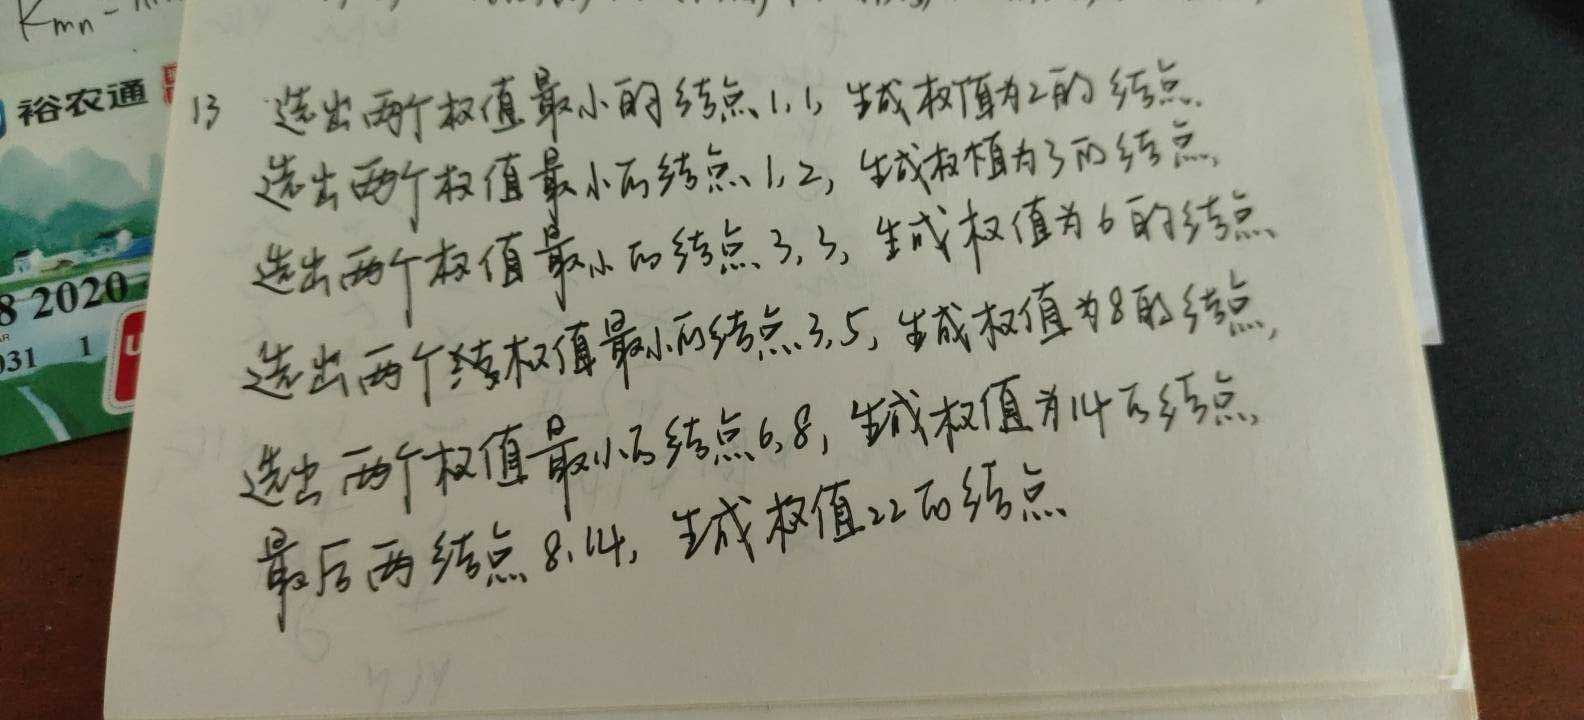 Kmn -
裕农通
8 2020
031 1
13 选出两个权值最小的结点1,1,生成权值为2的结点.
选出两个权值最小的结点1,2,生成权植为3的结点,
选出两个权值最小的结点3,3,生成权值为6的结点
选出两个权值最小的结点3,5,生成权值为8的结点,
选出两个权值最小的结点6,8,生成权值为14的结点,
最后两结点8,14,生成权值22的结点